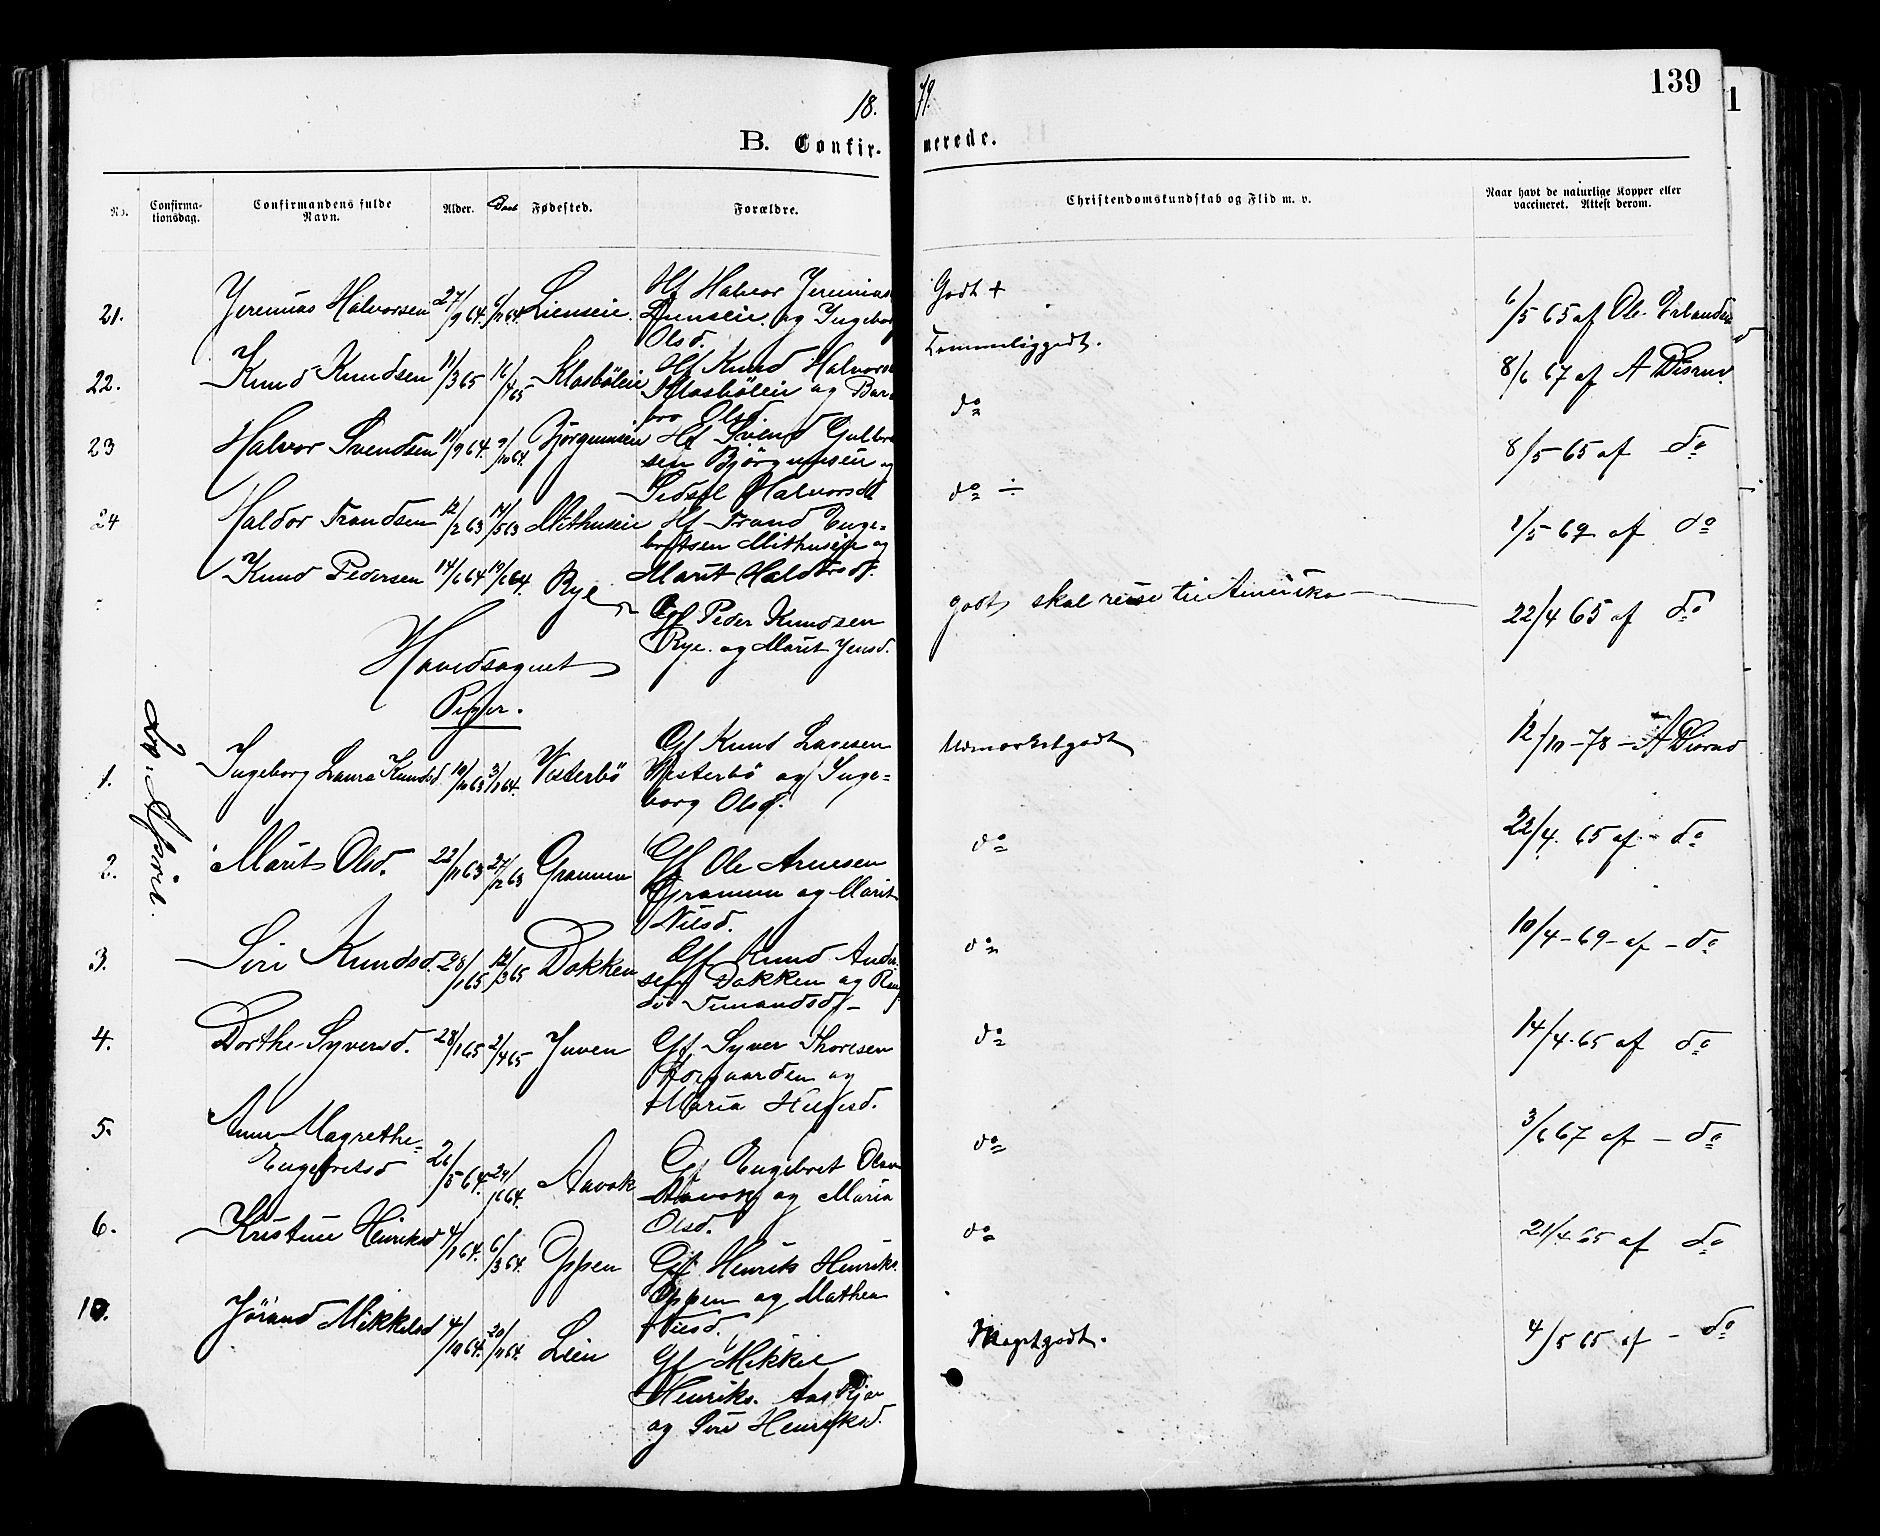 139
1
18. 79.
B. Confir- merede.
No. Confirma- tionsdag. Confirmandens fulde Navn. Alder. Daab Fødested. Forældre. Christendomskundskab og Flid m. v. Naar havt de naturlige Kopper eller vaccineret. Attest derom.
21. Jeremias Halvorsen 27/9 64. Lienseie. Hf Halvor Jeremias Godt + 6/5 65 af Ole Erlandsen
Lienseie og Ingeborg
Olsd.
22. Knud Knudsen 11/3 65 16/4 65 Klosbøleie Hf Knud Halvors Temmeliggodt. 8/6 67 af A Disrud
Klosbøleie og Bar
bro Olsd.
23 Halvor Svendsen 11/9 64. 9/10 64. Bjørgumseie Hf Svend Gulbr do 8/5-65 af do
sen Bjørgumseie og
Sidsel Halvorsdt
24 Haldor Trandsen 12/2 63 14/5 63 Mithuseie Hf Trand Enge= do ÷ /5 69 af do
bretsen Mithuseie og
Marit Haldorsdt.
Knud Pedersen 14/6 64 19/6 64. Rye Gf Peder Knudsen godt, skal reise til Amerika 22/4 65 af do
Rye. og Marit Jensd.
Hovedsognet
Piger.
20. April.
1. Ingeborg Laura Knudsd. 10/10 63 3/1 64. Vesterbø Gf Knud Lavesen Udmærketgodt 12/10-78-A Disrud
Westerbø og Inge=
borg Olsd.
2. Marit Olsd. 22/11 63 27/12 63 Gramen Gf Ole Arnesen do 22/4. 65 af - do
Gramen og Marit
Nilsd.
3. Siri Knudsd. 28/1 65 12/3 65 Dokken Gf Knud Ander do 10/4-69-af-do
sen Dokken og Ran
di Temandsd.
4. Dorthe Syversd. 28/1 65 2/4 65 Juven Gf Syver Thoresen do 14/4.65 af do
Hougaarden og
Maria Helgesd.
5. Anne Magrethe= Engebretsd 26/5 64. 24/ 64. Aavok Gf Engebret Olsen do 3/6 67 af - do
Aavok og Maria
Olsd.
6. Kristine Henriksd 4/1 64. 6/3 64. Oppen Gf Henrik Henriks. do 21/4 65 af do
Oppen og Mathea
Nilsd.
10. Jørand Mikkelsd 4/10 64. 20/11 64. Lien Gf Mikkel Megetgodt. 4/5 65 af - do
Henriks. Aaskjær
og Siri Henriksd.